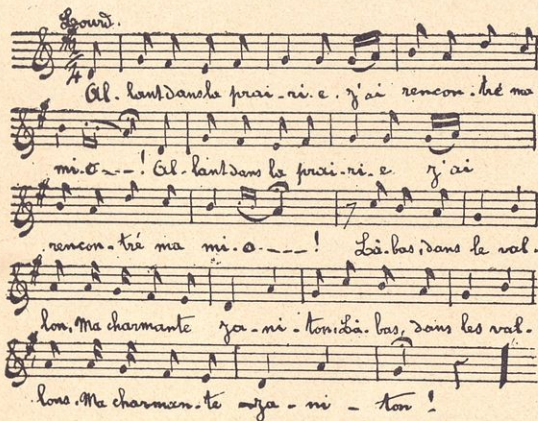 Lourd.
2/4
Al-lant dans la prai-ri-e, j'ai rencon-tré ma
mi-o---! Al-lant dans la prai-ri-e j'ai
rencon-tré ma mi-o----! Là-bas, dans le val-
lon, Ma charmante Ja-ni-ton; Là-bas, dans les val-
lons, Ma charman-te Ja-ni-ton!